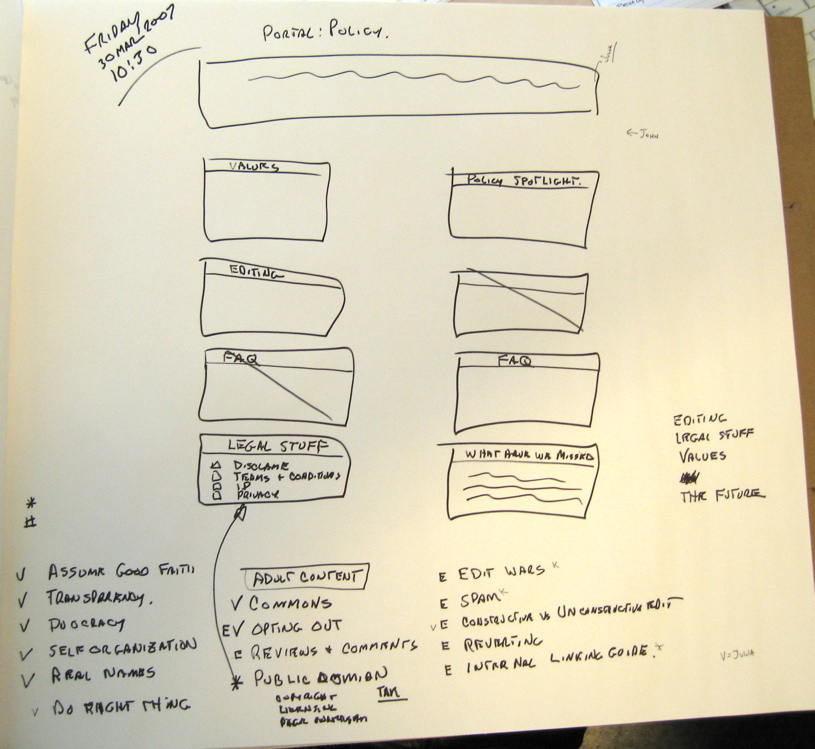 FRIDAY
30 MAR 2007
10:30
PORTAL: POLICY.
← JOHN
VALUES
POLICY SPOTLIGHT.
EDITING
FAQ
FAQ
LEGAL STUFF
DISCLAME
TERMS + CONDITIONS
IP
PRIVACY
WHAT HAVE WE MISSED
EDITING
LEGAL STUFF
VALUES
THE FUTURE
*
#
V ASSUME GOOD FAITH
V TRANSPARENCY.
V DUOCRACY
V SELF ORGANIZATION
V REAL NAMES
V DO RIGHT THING
ADULT CONTENT
V COMMONS
EV OPTING OUT
E REVIEWS + COMMENTS
* PUBLIC DOMIAN
COPYRIGHT
LICENSING
PAGE OWNERSHIP
TAX
E EDIT WARS K
E SPAM K
V E CONSTRUCTIVE VS UNCONSTRUCTIVE EDIT
E REVERTING
E INTERNAL LINKING GUIDE. *
V=JULIA